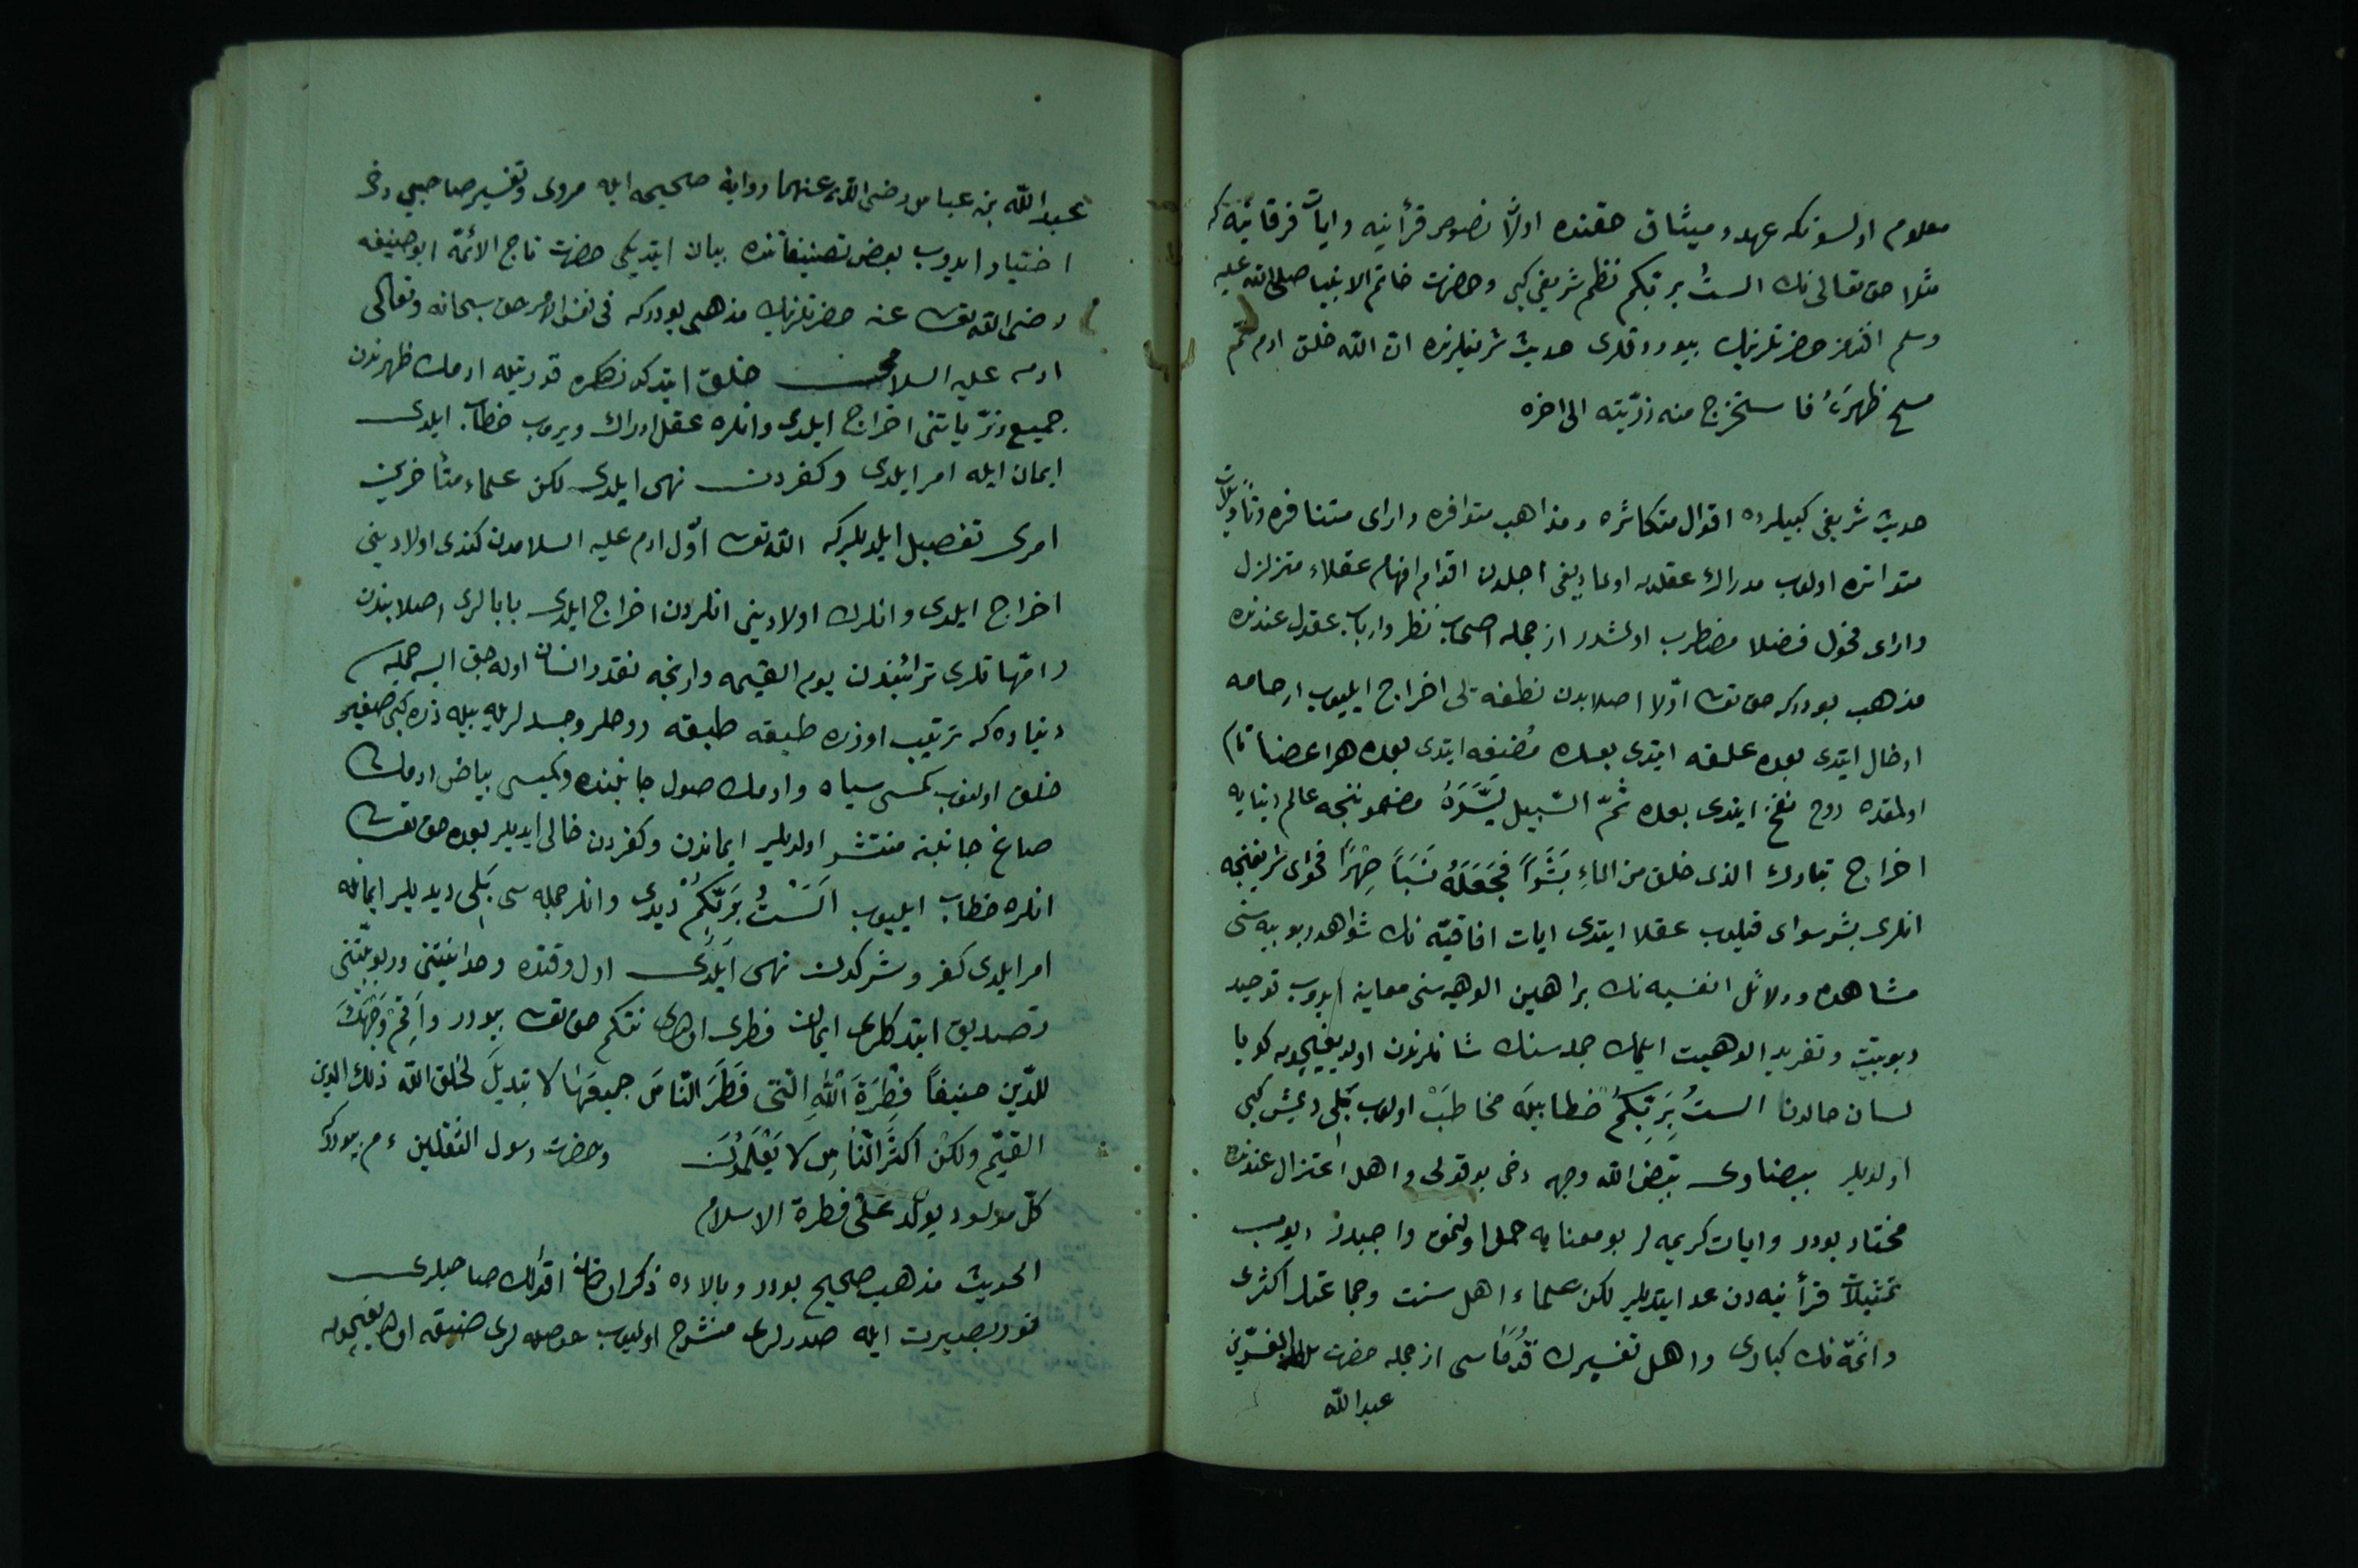 معلوم اولسونكه عهد و ميثاق حقنده اولًا نصوص قرأنيه وايات فرقانيّه كه
مثلا حق تعالى نك الستُ بربّكم نظم شريفى كبى وحضرت خاتم الانبيا صلى الله عليه
وسلم افندمز حضرتلرينك بيوردقلرى حديث شريفلرنده ان الله خلق ادم ثمّ
مسح ظهرَهُ فاستخرج منه ذرّيته الى اخره
حديث شريفى كبيلرده اقوال متكاثره ومذاهب متوافره واراى متنافره وتأويلات
متواتره اولوب مدرك عقلده اولمديغى اجلدن اقدام افهام عقلاء متزلزل
واراى فحول فضلا مضطرب اولمشدر از جمله اصحاب نظر وارباب عقول عندنده
مذهب بودركه حق تعـ اوّلا اصلابدن نطفه يى اخراج ايليوب ارحامه
ادخال ايتدى بعده علقه ايتدى بعده مُضغه ايتدى بعده هر اعضا تام
اولمقده روح نفخ ايتدى بعده ثمّ السّبيل يَسَّرَهُ مضمونجه عالم دنيايه
اخراج تبارك الذى خلق من الماءِ بَشَرًا فجَعَلَهُ نَسَبًا صِهْرًا فحواى شريفنجه
انلرى بشر سواى قيلوب عقلا ايتدى ايات افاقيّه نك شواهد ربوبيه سنى
مشاهده ودلائل انفسيه نك براهين الوهيه سنى معاينه ايدوب توحيد
ربوبيّت وتفريد الوهيت ايلمك جمله سنك شانلرندن اولديغيچون كويا
لسان حالدن الستُ بِرَبِّكُمْ خطابيله مخاطَبْ اولوب بَلٰى ديمش كبى
اولديلر بيضاوى بيّض الله وجهه دخى بو قولى و اهل اعتزال عندنده
مختار بودر وايات كريمه لر بو معنايه حمل اولنمق واجبدر ديوب
تمثيلات قرأنيه دن عد ايتديلر لكن علماء اهل سنت وجماعتك اكثرى
وائمّه نك كبارى واهل تفسيرك قُدَمَاسى از جمله حضرت المفسّرين
عبدالله
عبدالله بن عباس رضى الله عنهما روايه صحيحه ايله مروى وتفسير صاحبى دخى
اختيار ايدوب بعض تصنيفاتنده بيان ايتديكى حضرت تاج الائمّه ابو حنيفه
رضى الله تعـ عنه حضرتلرينك مذهبى بودركه فى نفس الامر حق سبحانه وتعالى
ادمى عليه السلام خلق ايتدكدنصكره قدرتيله ادمك ظهرندن
جميع ذرّياتنى اخراج ايلدى وانلره عقل ادراك ويروب خطاب ايلدى
ايمان ايله امر ايلدى وكفردن نهى ايلدى لكن علماء متأخرين
امرى تفصيل ايلديلركه الله تعـ اوّل ادم عليه السلامدن كندى اولادينى
اخراج ايلدى وانلرك اولادينى انلردن اخراج ايلدى بابالرى اصلابندن
وامّهاتلرى ترائبندن يوم القيمه وارنجه نقدر انسان اوله جق ايسه جمله سى
دنياده كه ترتيب اوزره طبقه طبقه روحلر وجسدلريله بيله ذره كبى صغير
خلق اولنوب كمسى سياه وادمك صول جانبنده وكميسى بياض ادمك
صاغ جانبنه منتشر اولديلر ايماندن وكفردن خالى ايديلر بعده حق تعـ
انلره خطاب ايليوب اَلَسْتُ بِرَبِّكُمْ ديدى وانلر جمله سى بَلٰى ديديلر ايمانله
امر ايلدى كفر وشركدن نهى ايلدى اول وقتده وحدانيّتنى وربوبيّتنى
تصديق ايتدكلرى ايمان فطرى اولدى نتكم حق تعـ بيورر وَاَقِمْ وَجْهَكَ
للدّين حنيفاً فِطْرَةَ اللهِ الّتى فَطَرَ النّاسَ جميعَهَا لا تبديلَ لخلق الله ذلك الدين
القيّم ولكنّ اكثَرَ النّاسِ لا يَعْلَمُونَ وحضرت رسول الثقلين ء م بيورركه
كلّ مولود يولَدُ عَلَى فطرة الاسلام
الحديث مذهب صحيح بودر وبالاده ذكر اولنان اقوالك صاحبلرى
نور بصيرت ايله صدرلرى منشرح اولميوب حوصله لرى ضيّقه اولديغيچون